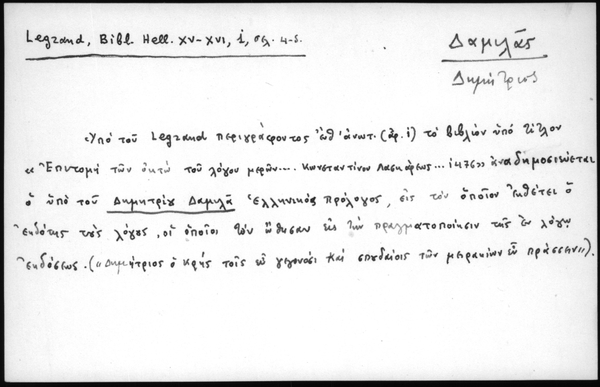 Legrand, Bibl. Hell. XV-XVI, i, σελ. 4-5.
Δαμιλᾶς
Δημήτριος
Ὑπὸ τοῦ Legrand περιγράφοντος ἔνθ' ἀνωτ. (ἀρ. i) τὸ βιβλίον ὑπὸ τίτλον
«Ἐπιτομὴ τῶν ὀκτὼ τοῦ λόγου μερῶν... Κωνσταντίνου Λασκάρεως... 1476» ἀναδημοσιεύεται
ὁ ὑπὸ τοῦ Δημητρίου Δαμιλᾶ ἑλληνικὸς πρόλογος, εἰς τὸν ὁποῖον ἐκθέτει ὁ
ἐκδότης τοὺς λόγους, οἱ ὁποῖοι τὸν ὤθησαν εἰς τὴν πραγματοποίησιν τῆς ἐν λόγῳ
ἐκδόσεως. («Δημήτριος ὁ Κρὴς τοῖς εὖ γεγονόσι καὶ σπουδαίοις τῶν μειρακίων εὖ πράσσειν»).